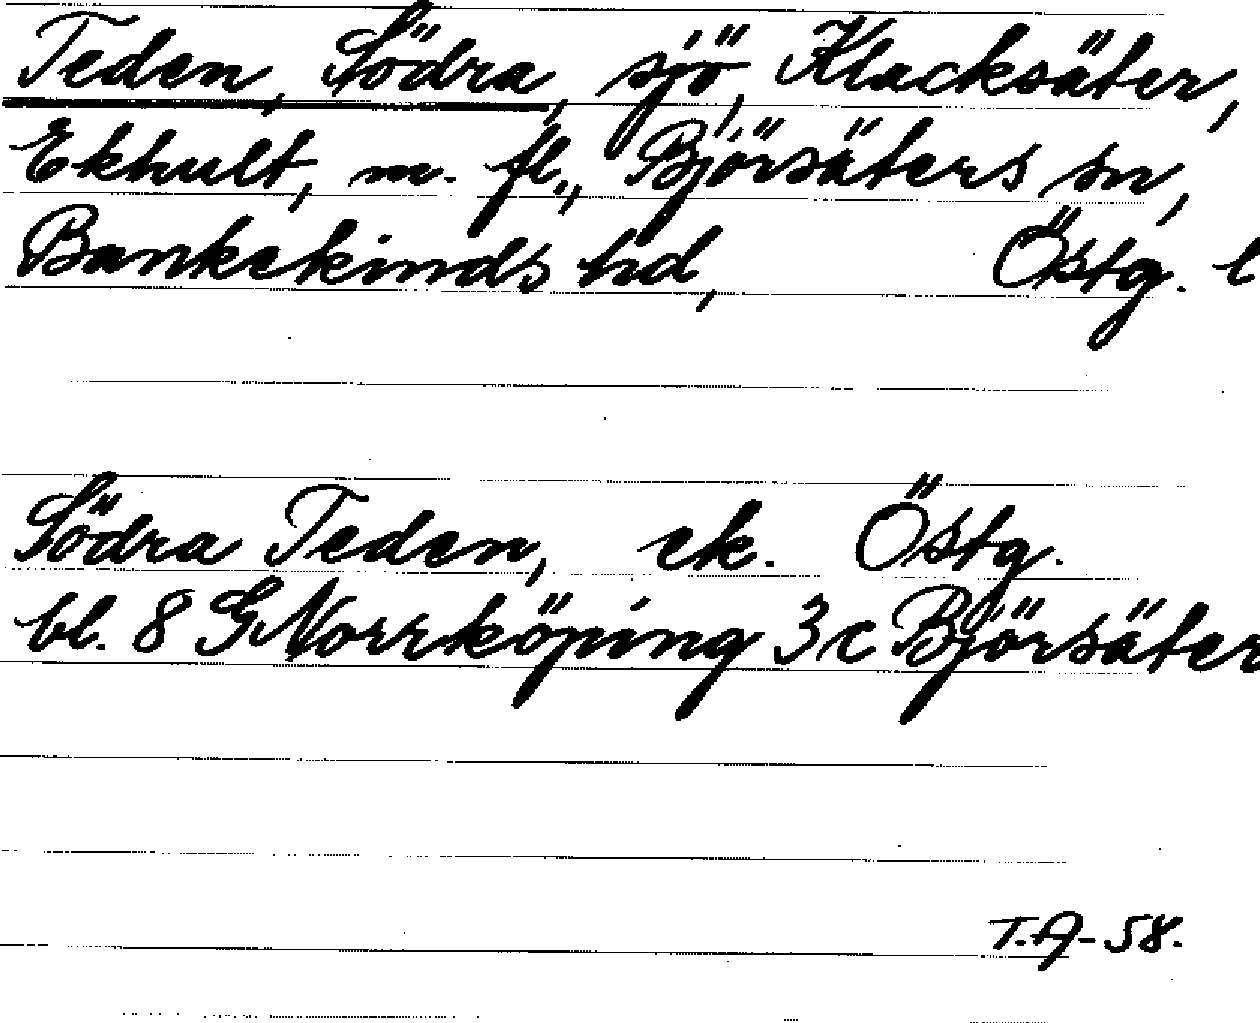 Teden, Södra, sjö, Klacksäter,
Ekhult, m. fl., Björsäters sn,
Bankekinds hd, Östg. l
Södra Teden, ek. Östg.
bl. 8 G Norrköping 3 c Björsäter
T.A-58.